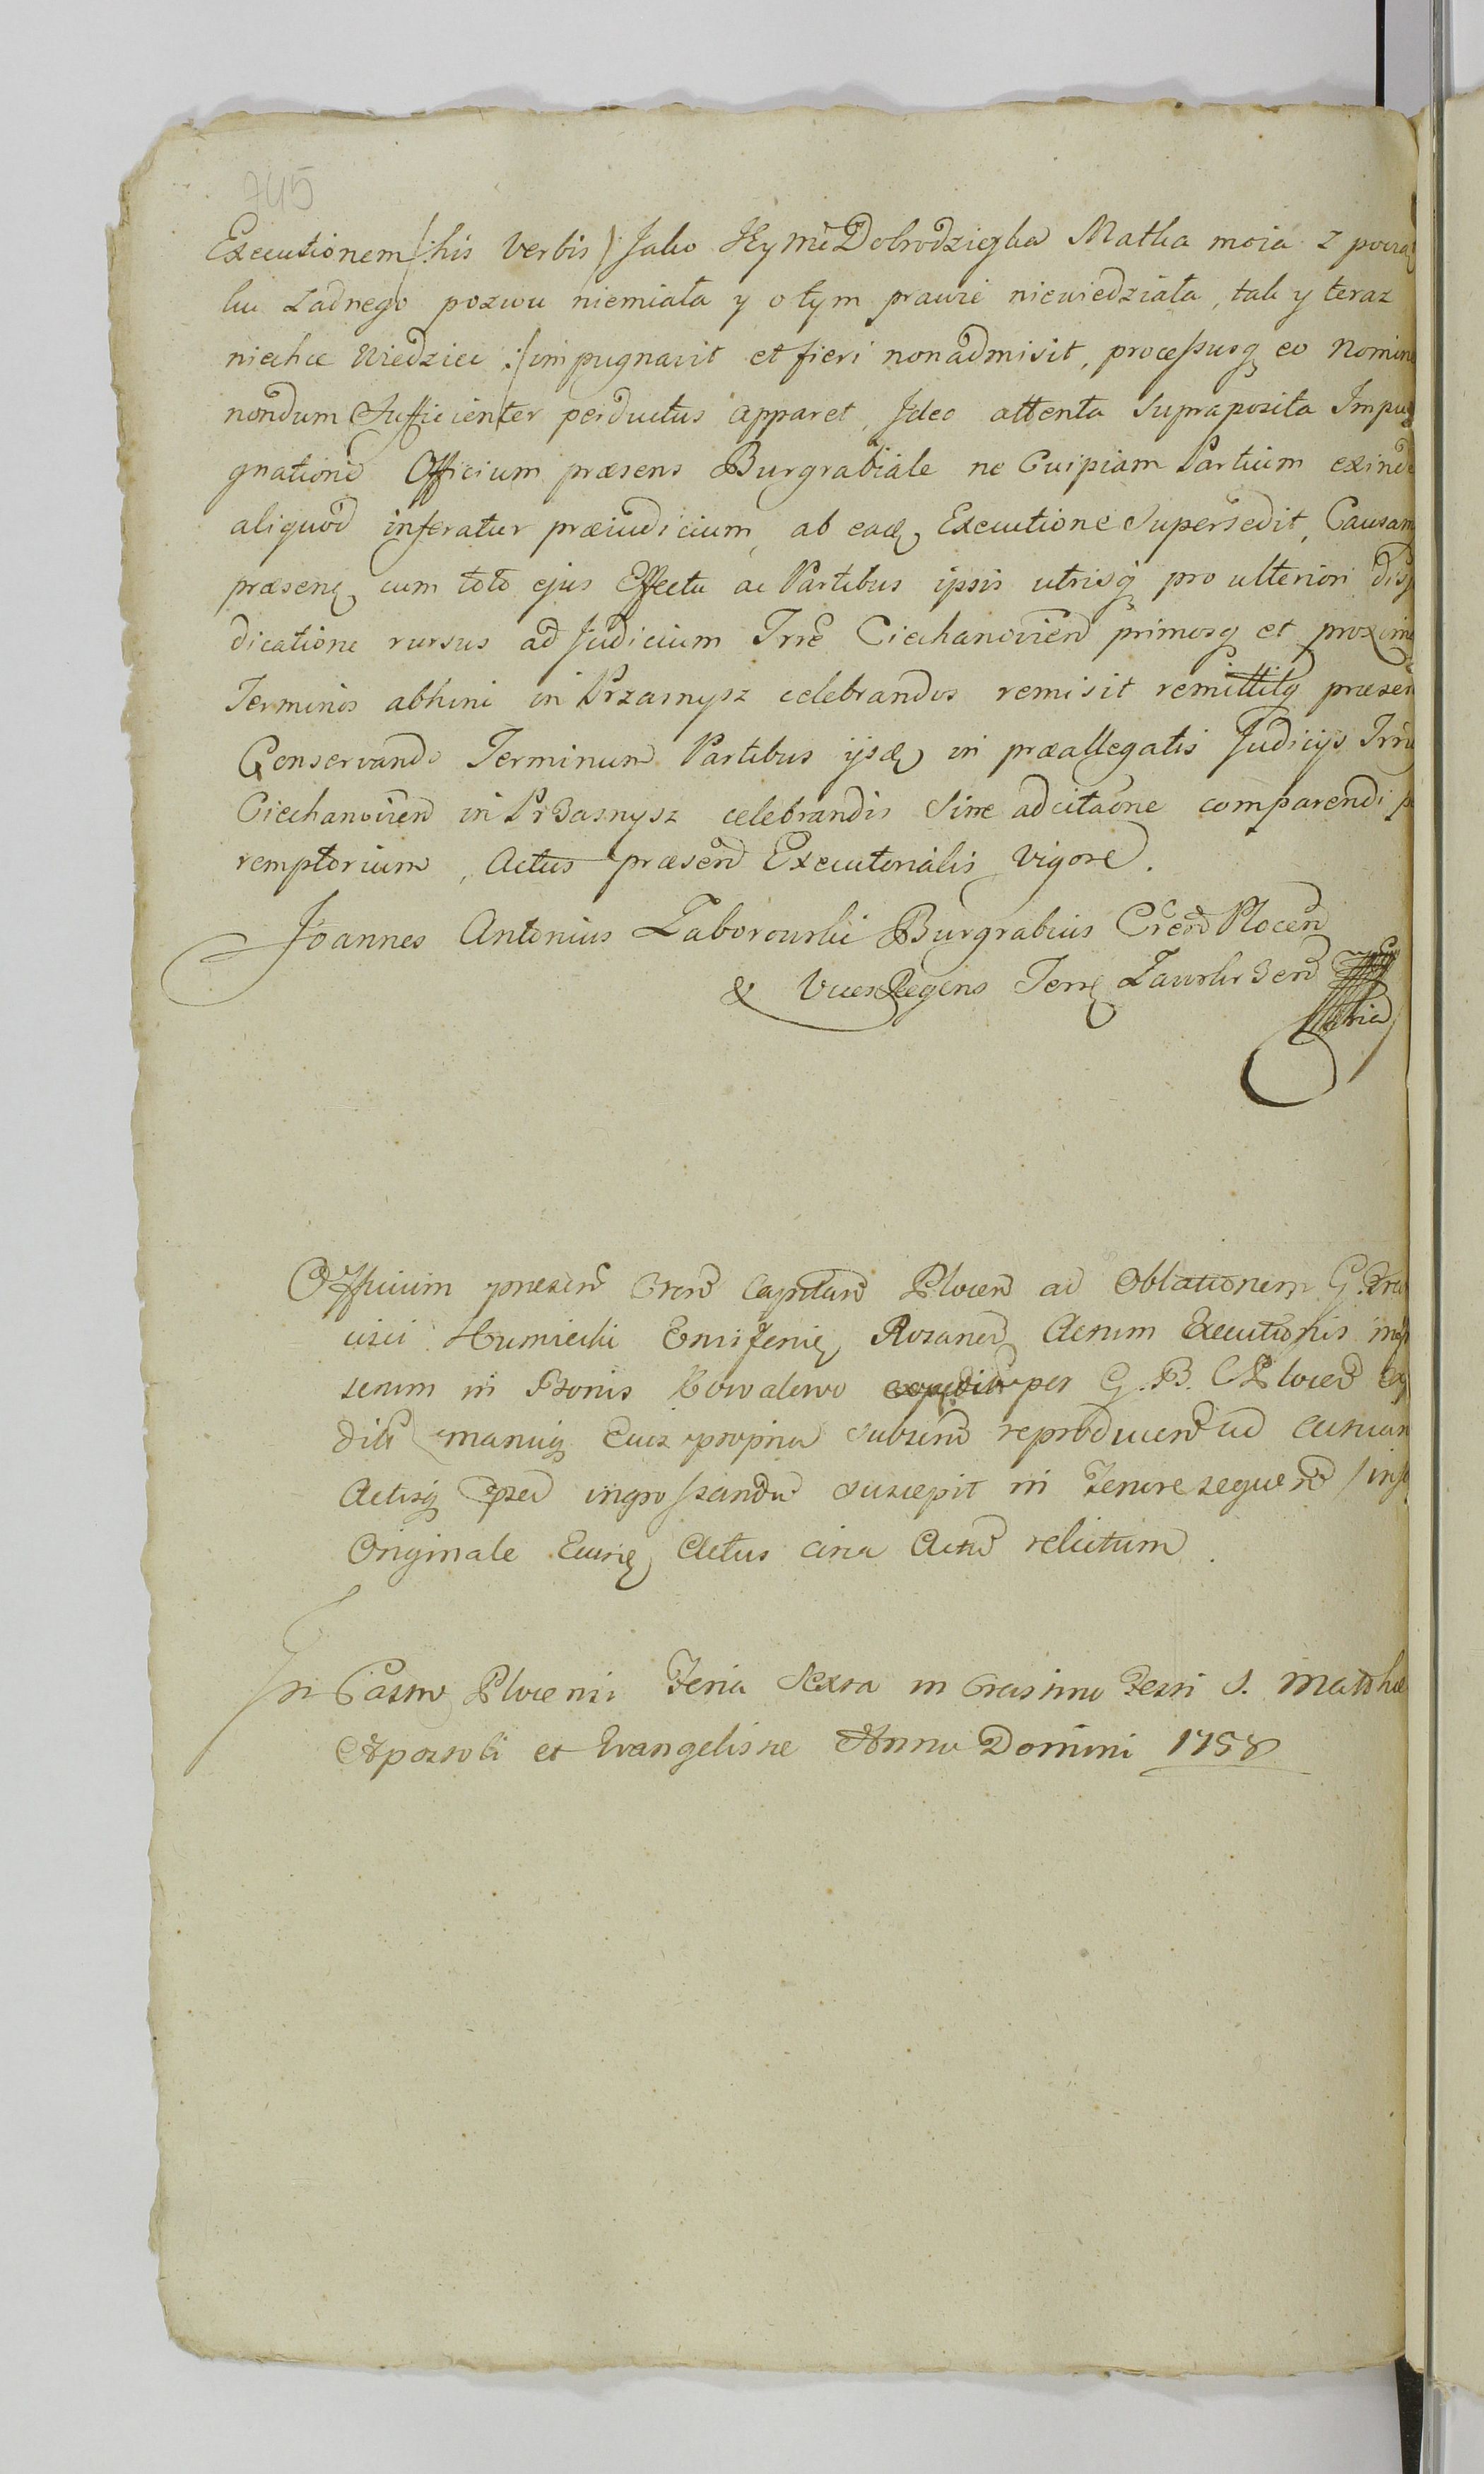 745
Executionem /: his Verbis :/ Jako Jey Mć Dobrodzieyka Matka moia z począ
ku zadnego pozwu niemiała y o tym prawie niewiedziała, tak y teraz
niechce wiedziec :/ impugnavit et fieri non admisit, processusq eo Nomine
nondum Sufficienter perductus apparet, Ideo attenta supraposita Impu
gnatione Officium præsens Burgrabiale ne Cuipiam Partium exinde
aliquod inferatur præiudicium, ab eadē Executione Supersedit, Causam
præsenē cum toto ejus Effectu ac Partibus ipsis utrisq pro ulteriori diju
dicatione rursus ad Judicium Trrē Ciechanovien primosq et proxim
Terminos abhinc in Przasnysz celebrandos remisit remittitq præsen
Conservando Terminum Partibus ijsdē in præallegatis Judicijs Trr
Ciechanovien in Przasnysz celebrandis Sine adcitaōne comparendi p
remptorium, Actus præsen Executorialis vigore.
Joannes Antonius Zaborowski Burgrabius Cren Plocen
& Vices Regens Terrē Zawkrzen
Officium præsen Cren Capitan Plocen ad Oblationem G. Fran
cisci Humiecki Ensiferiē Rozanen Actum Executionis
in Bonis Kowalewo per G. B. C. Plocen
manuq Eius propria subscrip reproducen ad Acticand
Actisq ingrossandū suscepit in Tenore sequen
Originale Eiusdē Actus circa Acta relictum.
In Castro Plocensi Feria Sexta in Crastino Festi S. Mathæ
Apostoli et Evangelistæ Anno Domini 1758